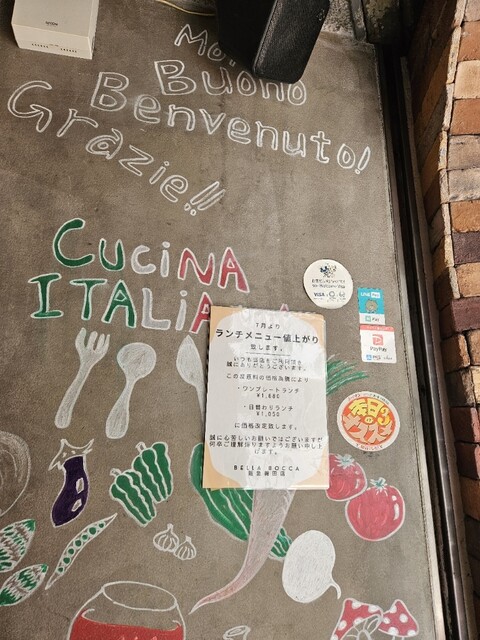 Mo
Buono
Benvenuto!
Grazie!!
CUCINA
ITALIA
7月より
ランチメニュー値上がり
致します。
いつも当店をご利用頂き
誠にありがとうございます。
この度原料の価格高騰により
・ワンプレートランチ
・日替わりランチ
¥1,050
に価格改定致します。
誠に心苦しいお願いではございますが
何卒ご理解賜りますようお願い申し上
げます。
BELLA ROCCA
VISA
PayPay